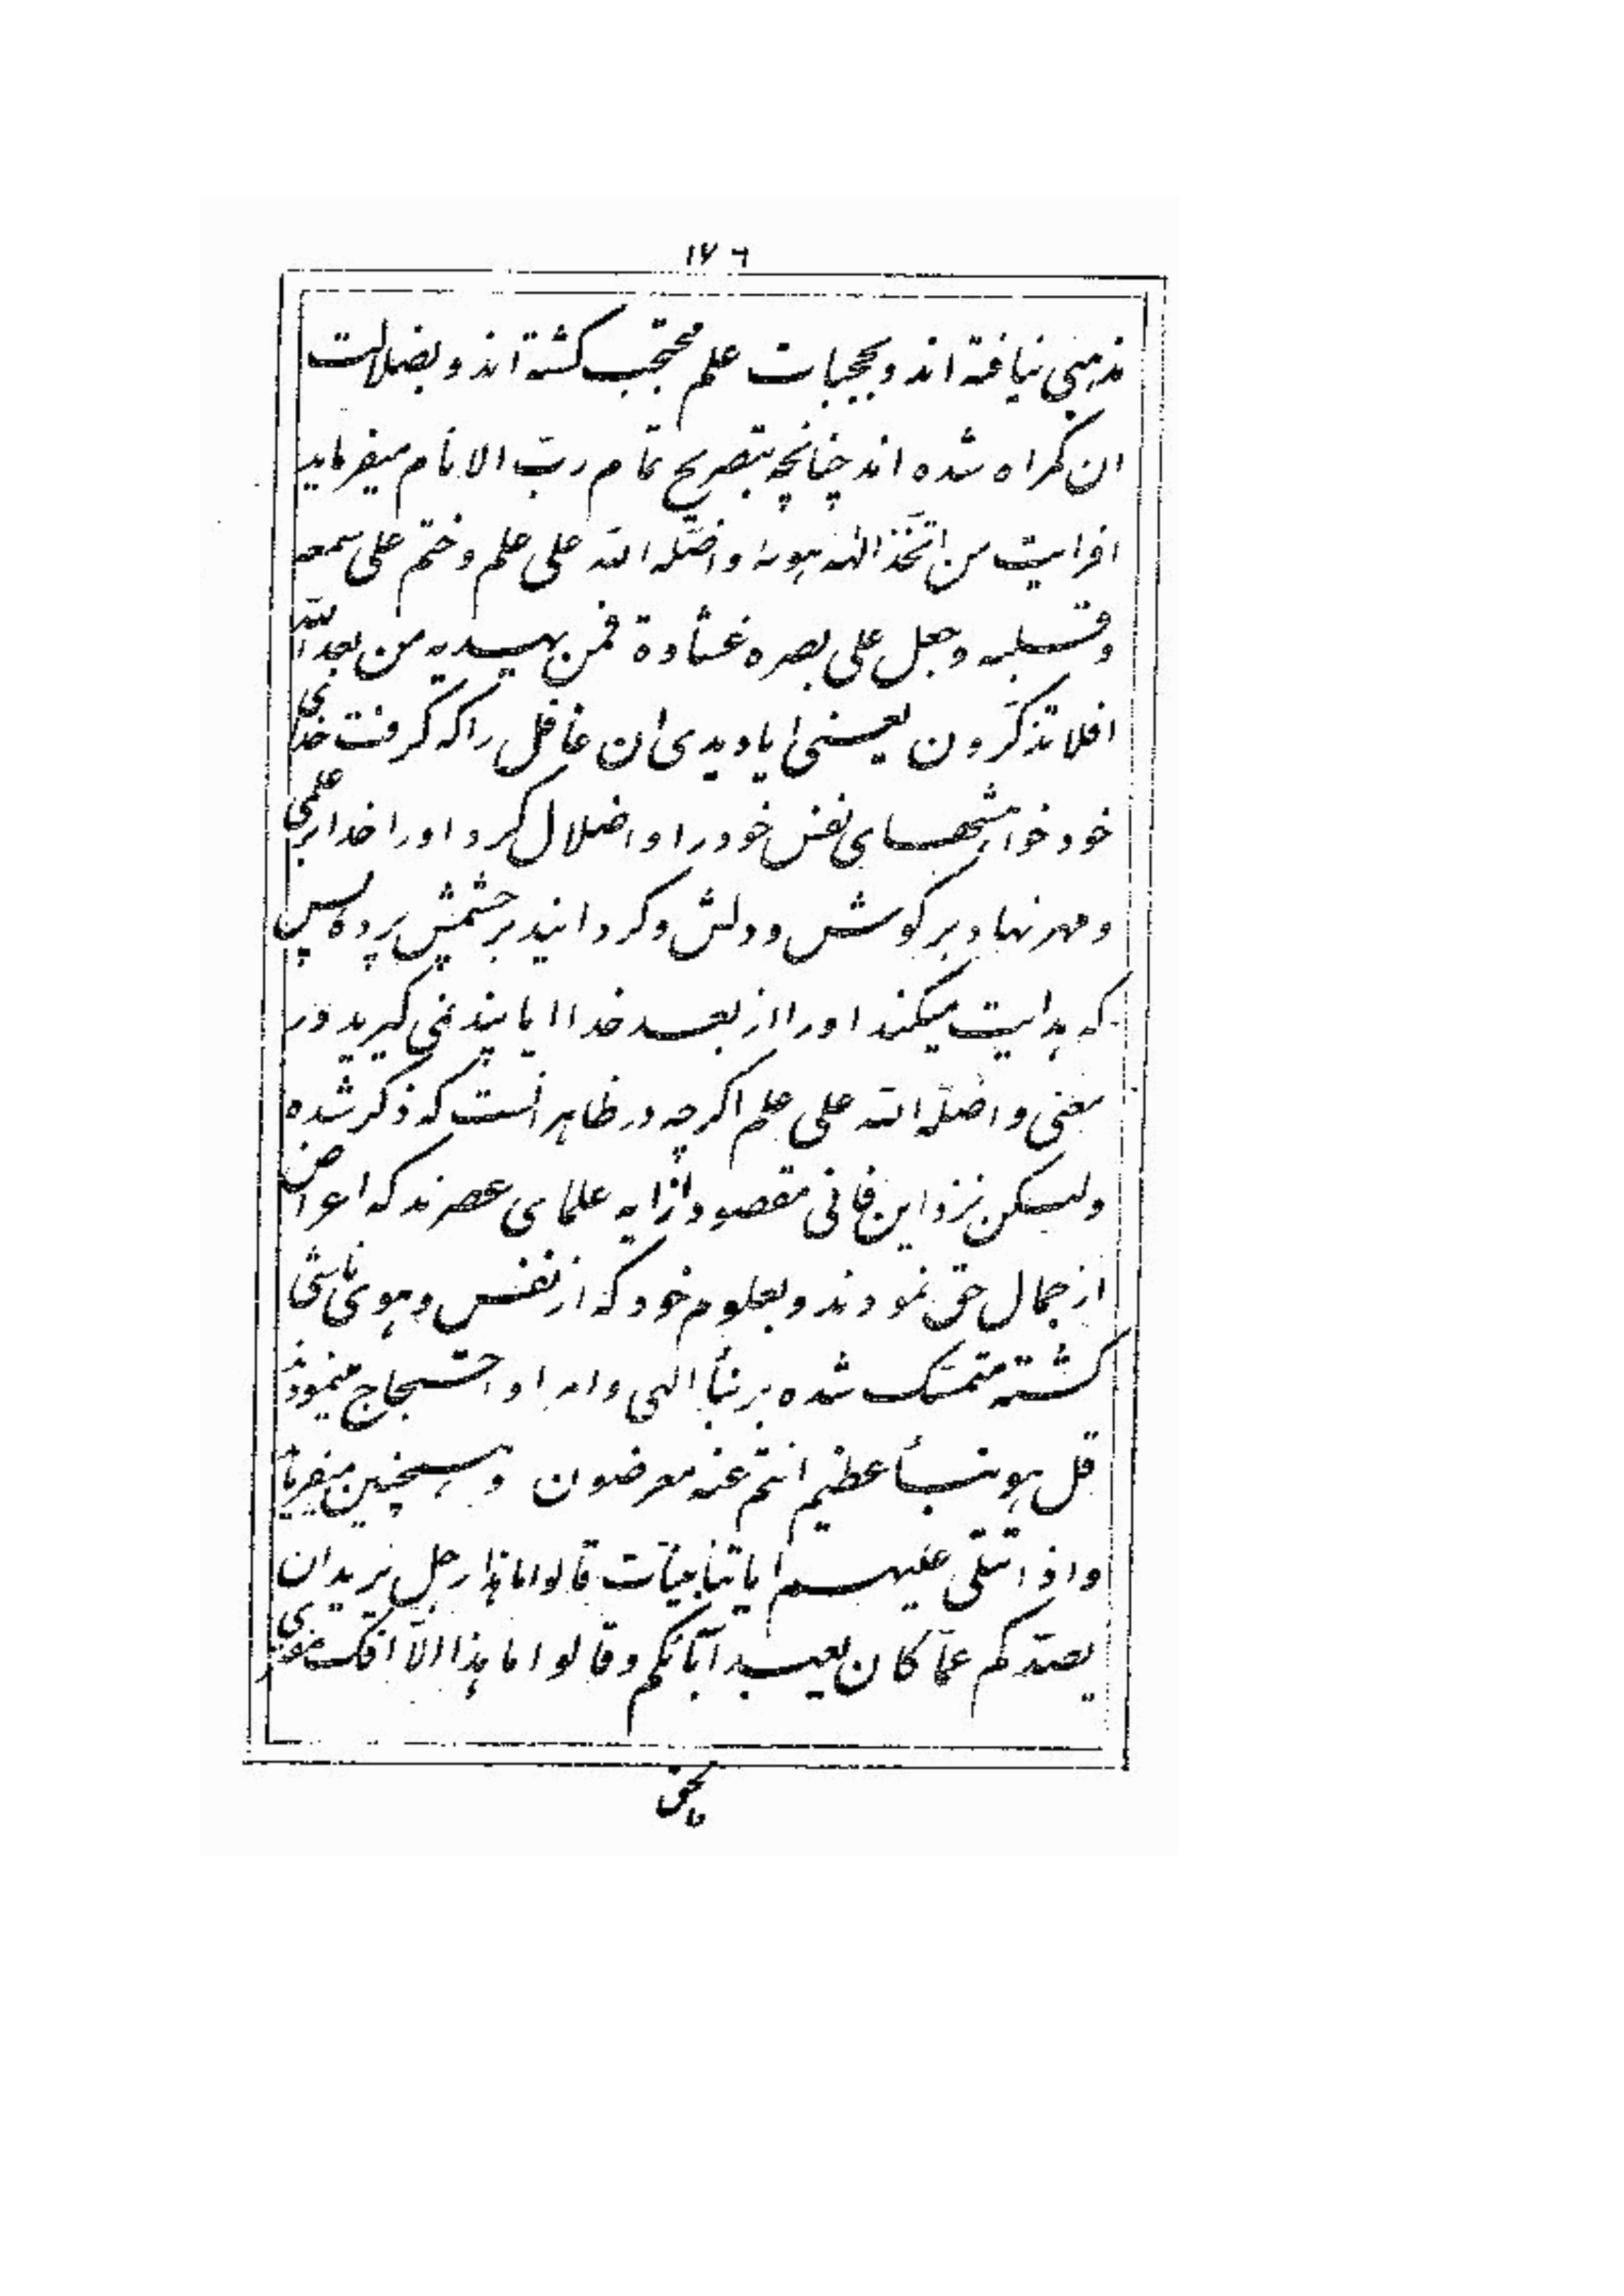 ١٧٦
مذهبی نیافته اند و بحجبات علم محتجب کشته اند و بضلالت
ان کمراه شده اند چنانچه بتصریح تمام ربّ الانام میفرماید
افرایت من اتّخذ الهه هویه و اضلّه اللّه علی علم و ختم علی سمعه
و قلبه و جعل علی بصره غشاوة فمن یهدیه من بعد اللّه
افلا تذکّرون یعنی ایا دیدی ان غافل را که کرفت خدای
خود خواهشهای نفس خود را و اضلال کرد او را خدا بر علمی
و مهر نهاد بر کوش و دلش و کردانید بر چشمش پرده پس
که هدایت میکند او را از بعد خدا ایا پند نمی کیرید و در
معنی و اضلّه اللّه علی علم اکرچه در ظاهر انست که ذکر شده
ولیکن نزد این فانی مقصود از ایه علمای عصرند که اعراض
از جمال حق نمودند و بعلوم خود که از نفس و هوی ناشی
کشته متمسّک شده بر نبأ الهی و امر او احتجاج مینمودند
قل هو نبأ عظیم انتم عنه معرضون و همچنین میفرماید
و اذا تتلی علیهم ایاتنا بیّنات قالوا ما هذا رجل یرید ان
یصدّکم عمّا کان یعبد آبائکم و قالوا ما هذا الّا افک مفتری